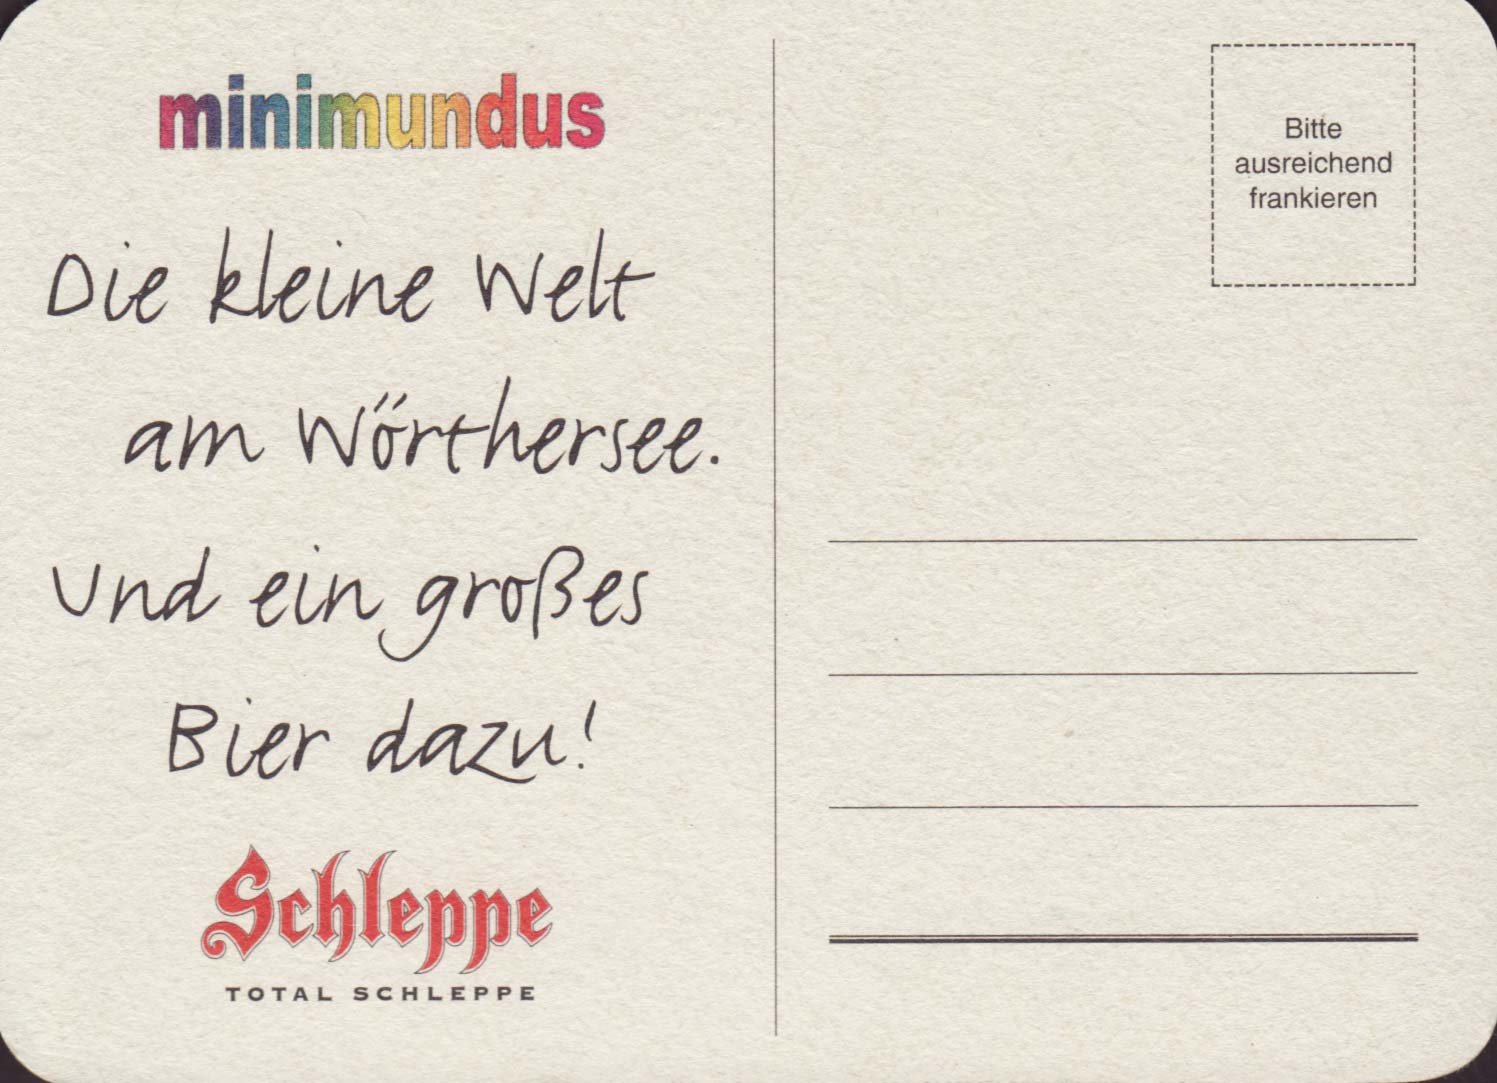 minimundus
Die kleine Welt
am Wörthersee.
Und ein großes
Bier dazu!
Schleppe
TOTAL SCHLEPPE
Bitte
ausreichend
frankieren